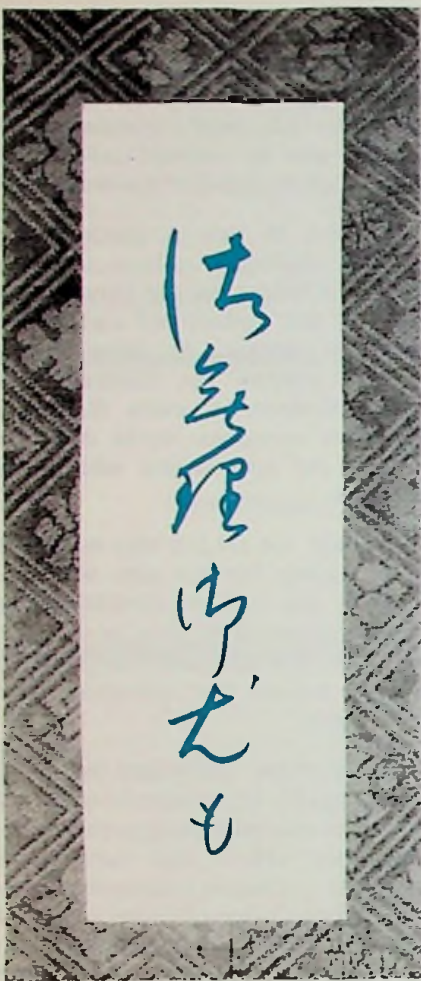 御無理御尤も